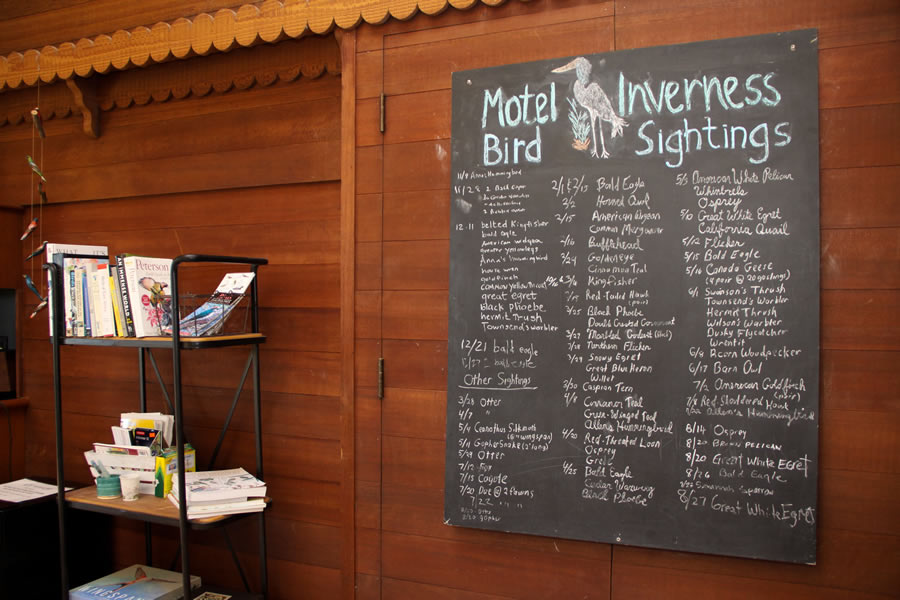 Motel Inverness
Bird Sightings
11/9 Annas Hummingbird
11/28
12-11 belted Kingfisher
bald eagle
American widgeon
greater yellowlegs
Anna's hummingbird
house wren
goldfinch
common yellowthroat
great egret
black phoebe
hermit thrush
Townsends warbler
12/21 bald eagle
bald eagle
Other Sightings
3/28 Otter
4/7 "
5/4 Ceanothus Silkmoth
5/4 Gopher Snake
5/29 Otter
7/12 Fox
7/15 Coyote
7/20 Doe @ 2 Fawns
7/22 " " "
2/1 & 2/15 Bald Eagle
2/2 Horned Owl
2/15 American Wigeon
Common Merganser
2/16 Bufflehead
2/24 Goldeneye
Cinnamon Teal
Kingfisher
Red-Tailed Hawk
(pair)
3/25 Black Phoebe
Double Crested Cormorant
3/27 Marbled Godwit
3/28 Northern Flicker
3/29 Snowy Egret
Great Blue Heron
Willet
3/30 Caspian Tern
4/8 Cinnamon Teal
Green-Winged Teal
Allen's Hummingbird
4/20 Red-Throated Loon
Osprey
Grebe
4/25 Bald Eagle
Cedar Waxwing
Black Phoebe
5/5 American White Pelican
Whimbrels
Osprey
5/10 Great White Egret
California Quail
5/12 Flicker
5/15 Bald Eagle
5/16 Canada Geese
(1 pair @ 20 goslings)
6/1 Swainson's Thrush
Townsend's Warbler
Hermit Thrush
Wilson's Warbler
Dusky Flycatcher
Wrentit
6/8 Acorn Woodpecker
6/17 Barn Owl
7/2 American Goldfinch
(pair)
7/8 Red Shouldered Hawk
7/22 Allen's Hummingbird
8/14 Osprey
8/20 Brown Pelican
8/20 Great White Egret
8/26 Bald Eagle
Savannah Sparrow
8/27 Great White Egret
Peterson
LIVINGSPAN